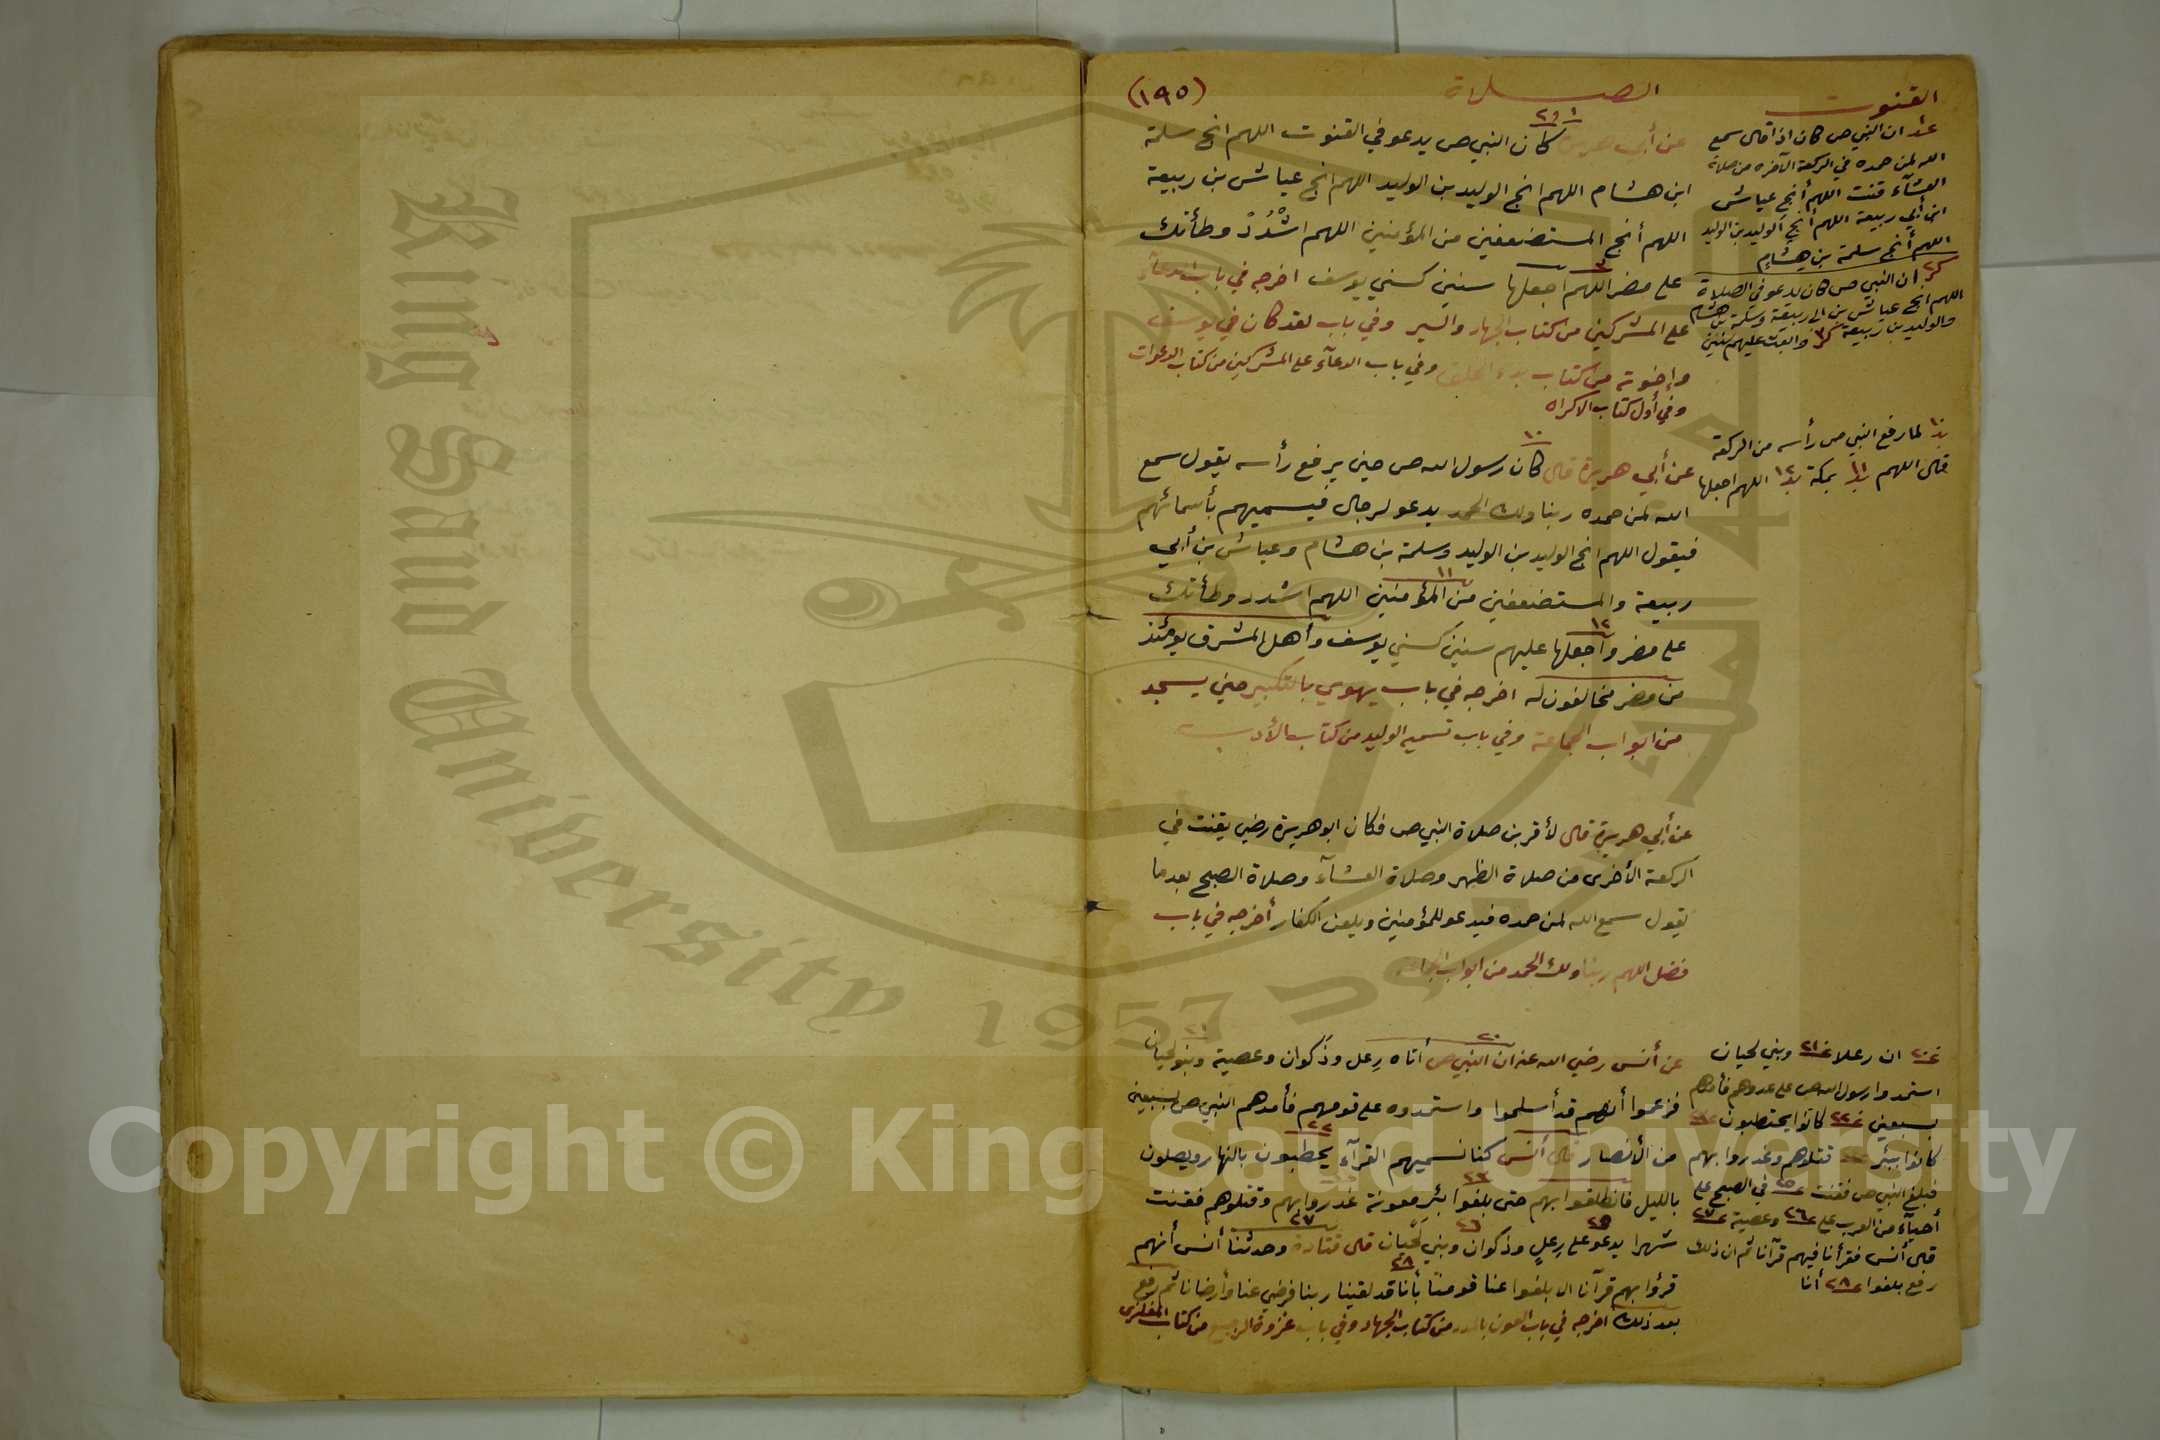 القنوت
الصلاة
(١٩٥)
١ و ٢
عن أبي هريرة كان النبي ص يدعو في القنوت اللهم انج سلمة
ابن هشام اللهم انج الوليد بن الوليد اللهم انج عياش بن ربيعة
اللهم أنج المستضعفين من المؤمنين اللهم اشْدُدْ وطأتك
٣
على مضر اللهم اجعلها سنين كسني يوسف اخرجه في باب الدعآء
على المشركين من كتاب الجهاد والسير وفي باب لقد كان في يوسف
وإخوته من كتاب بدء الخلق وفي باب الدعآء على المشركين من كتاب الدعوات
وفي أول كتاب الاكراه
١٠
عن أبي هريرة قال كان رسول الله ص حين يرفع رأسه يقول سمع
الله لمن حمده ربنا ولك الحمد يدعو لرجال فيسميهم بأسمائهم
فيقول اللهم انج الوليد بن الوليد وسلمة بن هشام وعياش بن أبي
١١
ربيعة والمستضعفين من المؤمنين اللهم اشدد وطأتك
١٢
على مضر واجعلها عليهم سنين كسني يوسف وأهل المشرق يومئذ
من مضر مخالفون له اخرجه في باب يهوي بالتكبير حين يسجد
من ابواب الجماعة وفي باب تسمية الوليد من كتاب الأدب
عن أبي هريرة قال لأقربن صلاة النبي ص فكان ابو هريرة رضي يقنت في
الركعة الأخرى من صلاة الظهر وصلاة العشآء وصلاة الصبح بعدما
يقول سمع الله لمن حمده فيدعو للمؤمنين ويلعن الكفار أخرجه في باب
فضل اللهم ربنا ولك الحمد من ابواب الجماعة
٢٠ ٢١
عن أنس رضي الله عنه ان النبي ص أتاه رِعل وذَكوان وعصية وبنو لحيان
فزعموا أنهم قد أسلموا واستمدوه على قومهم فأمدهم النبي ص بسبعين
٢٢
من الأنصار قال أنس كنا نسميهم القرآء يحطبون بالنهار ويصلون
٢٣
بالليل فانطلقوا بهم حتى بلغوا بئر معونة غدروا بهم وقتلوهم فقنت
٢٥ ٢٦ ٢٧
شهرا يدعو على رِعلٍ وذكوان وبني لَحيان قال قتادة وحدثنا أنس أنهم
٢٨
قرؤا بهم قرآنا الا بلغوا عنا قومنا بأنا قد لقينا ربنا فرضي عنا وأرضانا ثم رفع
بعد ذلك اخرجه في باب العون بالمدد من كتاب الجهاد وفي باب غزوة الرجيع من كتاب المغازي
ان النبي ص كان اذا قال سمع
الله لمن حمده في الركعة الآخرة من صلاة
العشآء قنت اللهم أنج عياش
ابن أبي ربيعة اللهم أنج الوليد بن الوليد
اللهم أنج سلمة بن هشام
ان النبي ص كان يدعو في الصلاة
اللهم انج عياش بن ابي ربيعة وسلمة بن هشام
والوليد بن ربيعة وابعث عليهم سنين
لما رفع النبي ص رأسه من الركعة
قال اللهم ١١ بمكة ١٢ اللهم اجعلها
٢٠ ان رعلا ٢١ وبني لحيان
استمدوا رسول الله ص على عدوهم فأمدهم
بسبعين ٢٢ كانوا يحتطبون
كانوا ببئر قتلوهم وغدروا بهم
فبلغ النبي ص فقنت ٢٥ في الصبح على
أحيآء من العرب على ٢٦ وعصية ٢٧
قال أنس فقرأنا فيهم قرآنا ثم ان ذلك
رفع بلغوا ٢٨ أنا
King Saud University
1957
Copyright © King Saud University